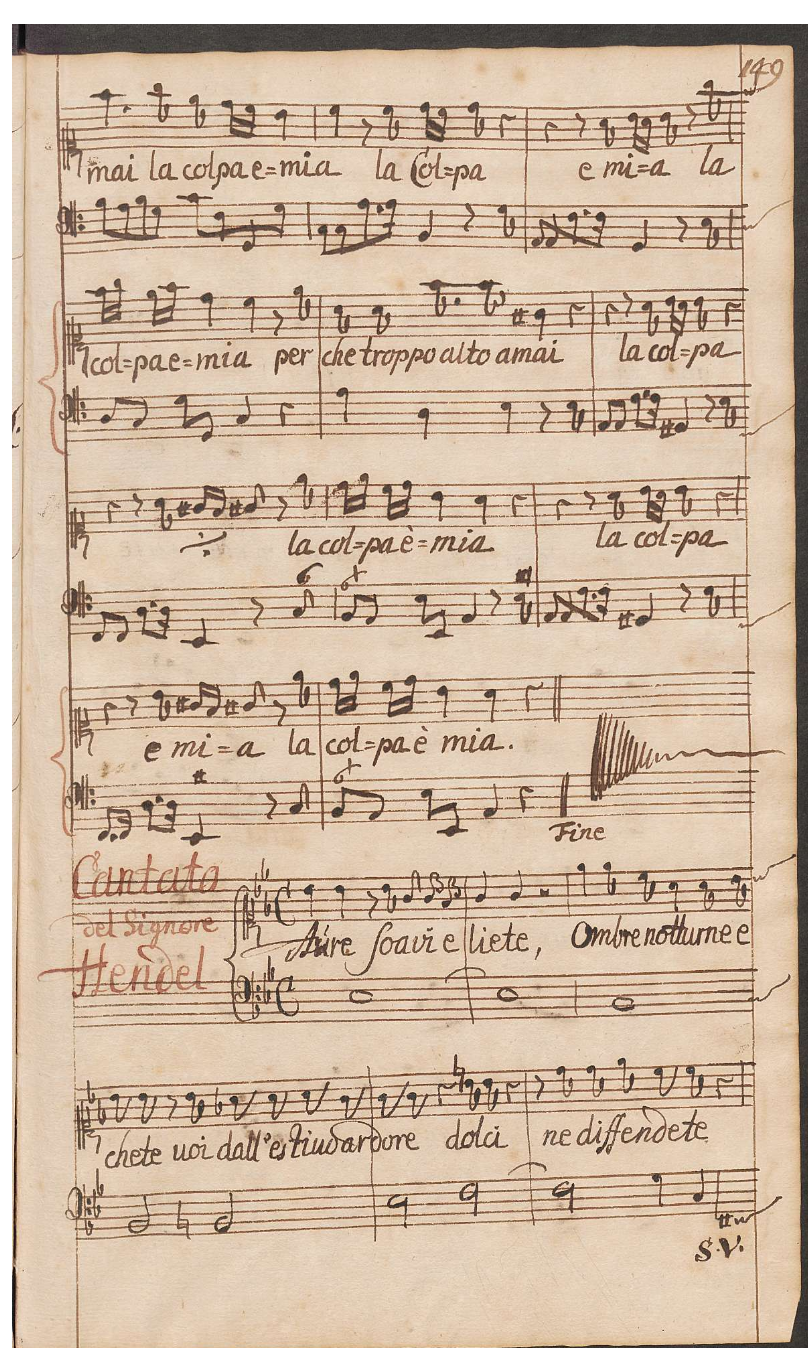 149
mai la colpa e=mia la Col=pa e mi=a la
col=pa e=mia per che troppo alto amai la col=pa
la col=pa è=mia la col=pa
e mi=a la col=pa è mia.
Fine
Cantata
del Signore
Hendel
Aure soavi e liete, Ombre notturne e
chete voi dall'estiuo ardore dolci ne diffendete
S.V.